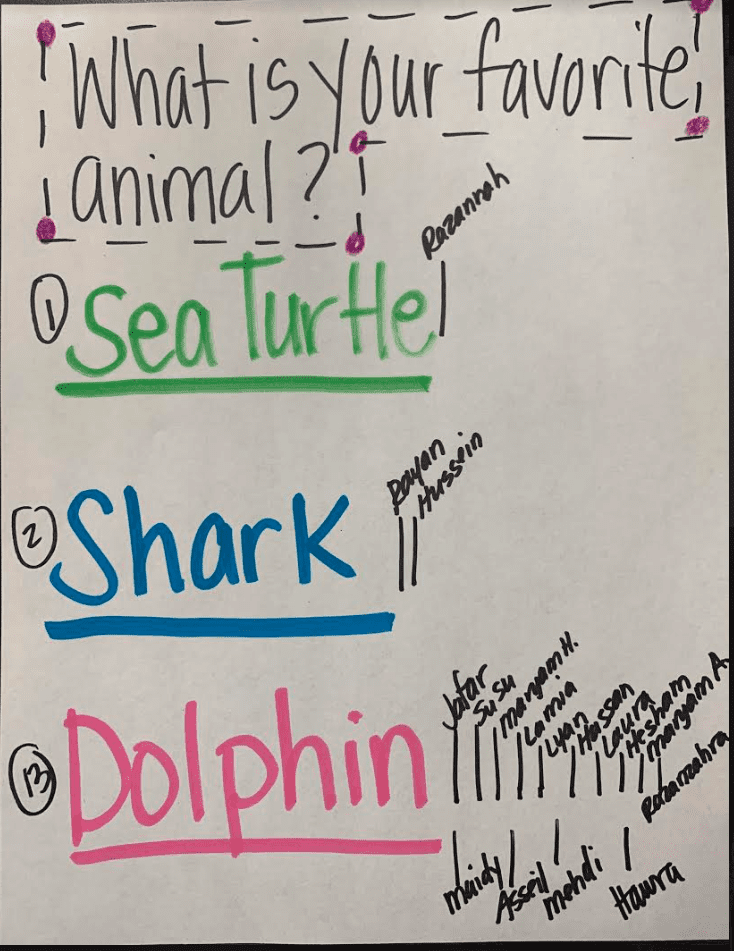 What is your favorite
animal?
Razannah
1 Sea Turtle
Rayan
Hussein
2 Shark
Jafar
Susu
Maryam H.
Lamia
Lyan
Hassan
Laura
Hesham
Maryam A.
Razanzahra
13 Dolphin
Maidy
Asseil
Mehdi
Hawra